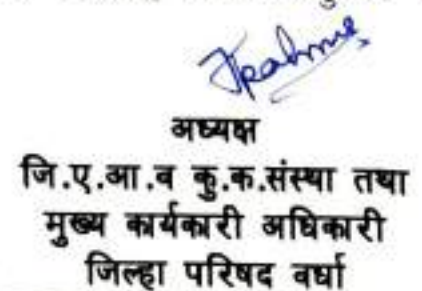 अध्यक्ष
जि.ए.आ.व कु.क.संस्था तथा
मुख्य कार्यकारी अधिकारी
जिल्हा परिषद वर्धा